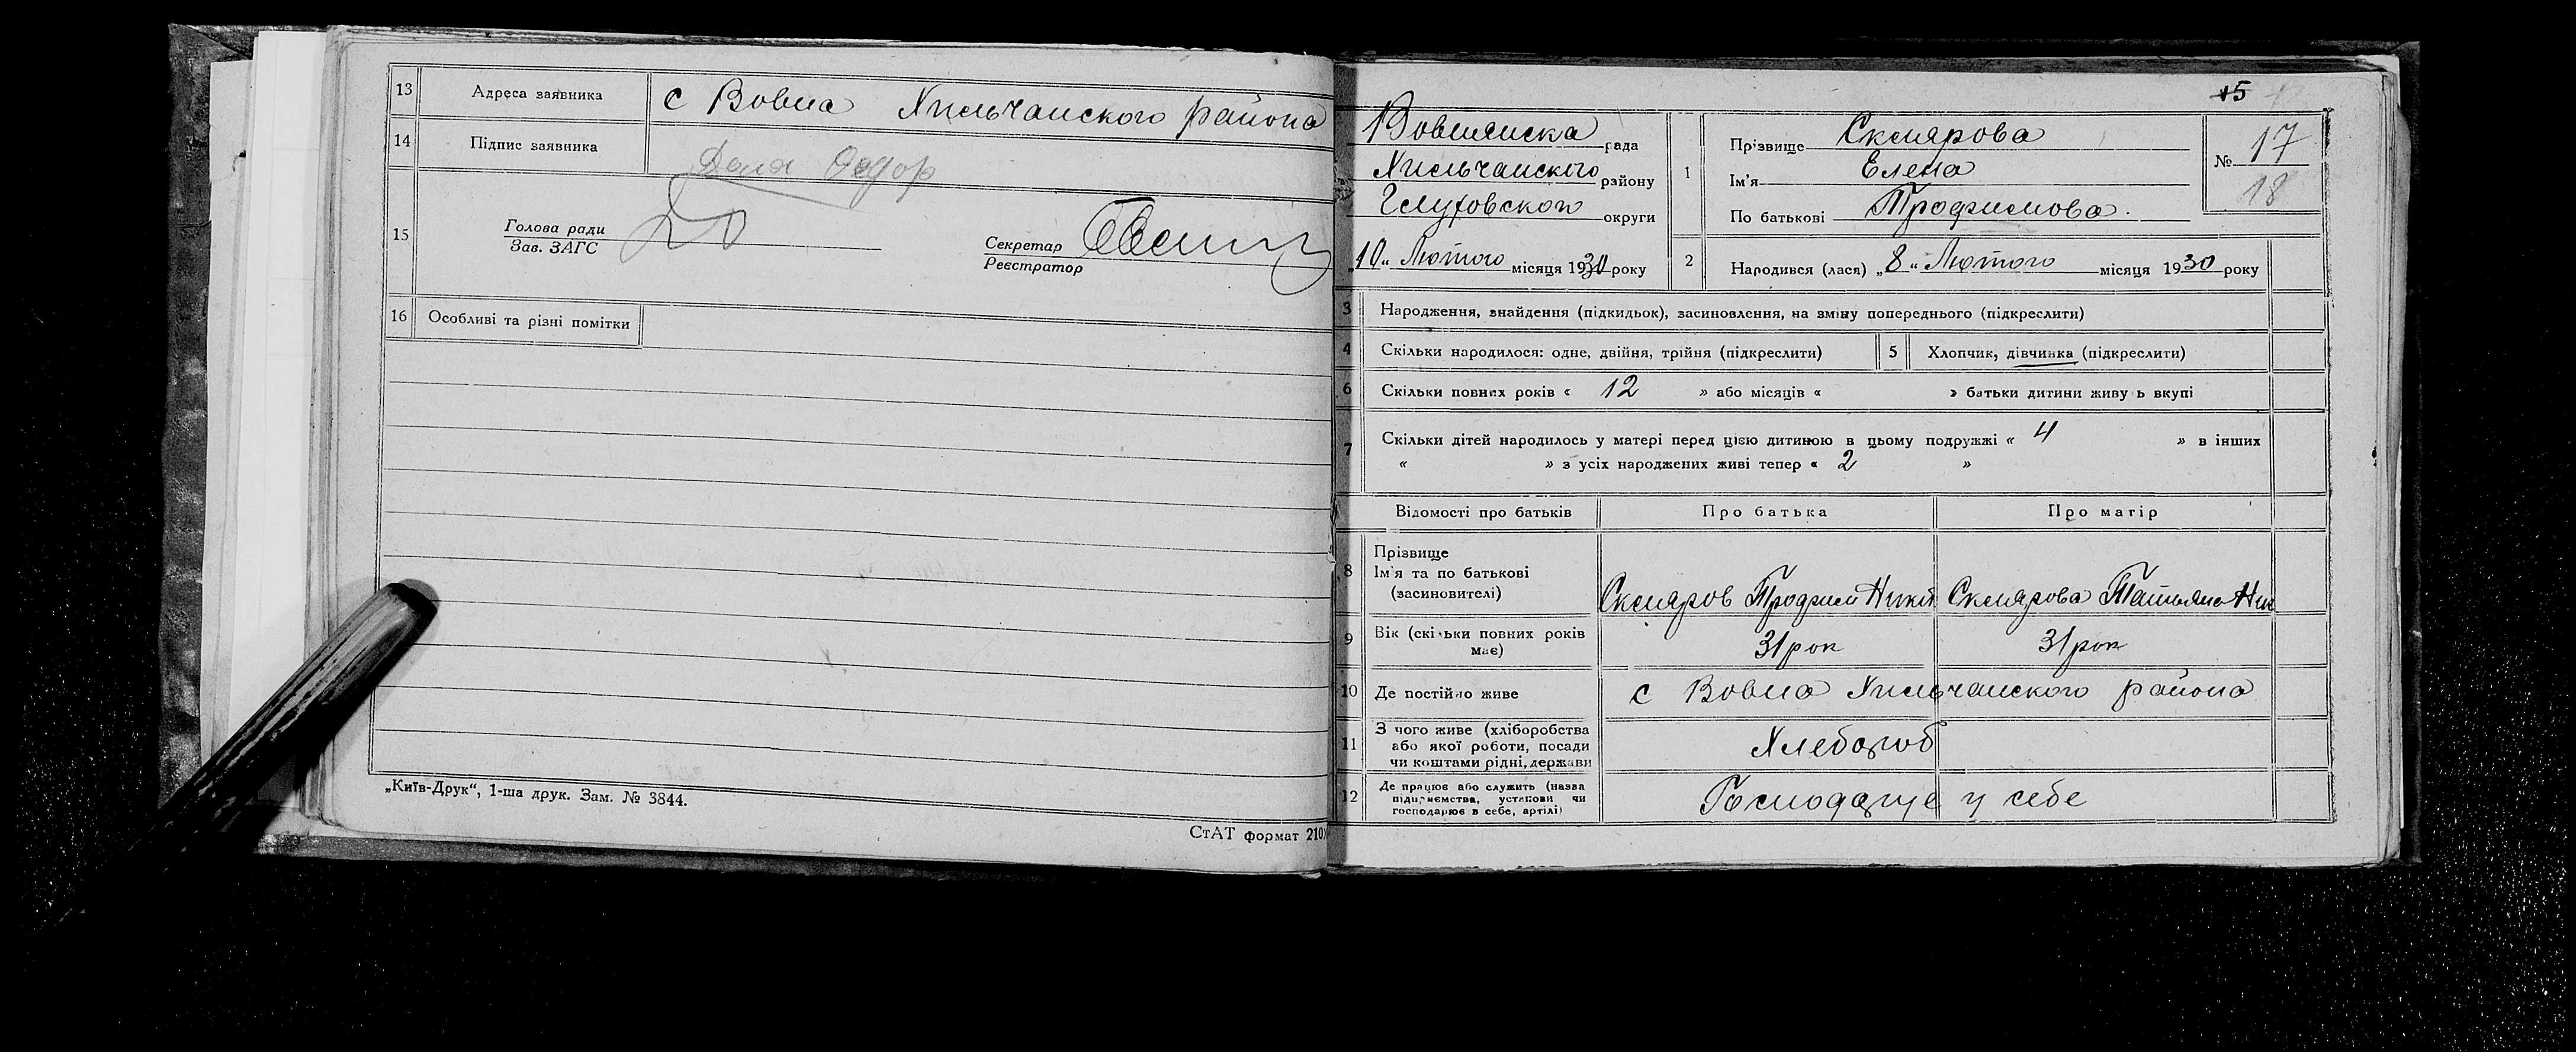 13 Адреса заявника с Вовна Хильчанского района
14 Підпис заявника
15 Голова ради
Зав. ЗАГС
Секретар
Реєстратор
16 Особливі та різні помітки
„Київ-Друк“, 1-ша друк. Зам. № 3844.
СтАТ формат 210
15
Вовнянска рада
Хильчанского району
Глуховскои округи
„10“ Лютого місяця 1930 року
1 Прізвище Склярова
Ім'я Елена
По батькові Трофимова.
№ 17
18
2 Народився (лася) „8“ Лютого місяця 1930 року
3 Народження, знайдення (підкидьок), засиновлення, на зміну попереднього (підкреслити)
4 Скільки народилося: одне, двійня, трійня (підкреслити)
5 Хлопчик, дівчинка (підкреслити)
6 Скільки повних років « 12 » або місяців « » батьки дитини живуть вкупі
7 Скільки дітей народилось у матері перед цією дитиною в цьому подружжі « 4 » в інших
« » з усіх народжених живі тепер « 2 »
Відомості про батьків Про батька Про матір
8 Прізвище
Ім'я та по батькові
(засиновителі)
Скляров Трофим Никит Склярова Татьяна Ник
9 Вік (скільки повних років
має)
31 рок 31 рок
10 Де постійно живе с Вовна Хильчанского района
11 З чого живе (хліборобства
або якої роботи, посади
чи коштами рідні, держави
Хлебороб
12 Де працює або служить (назва
підприємства, установи чи
господарює в себе, артілі)
Господарує у себе